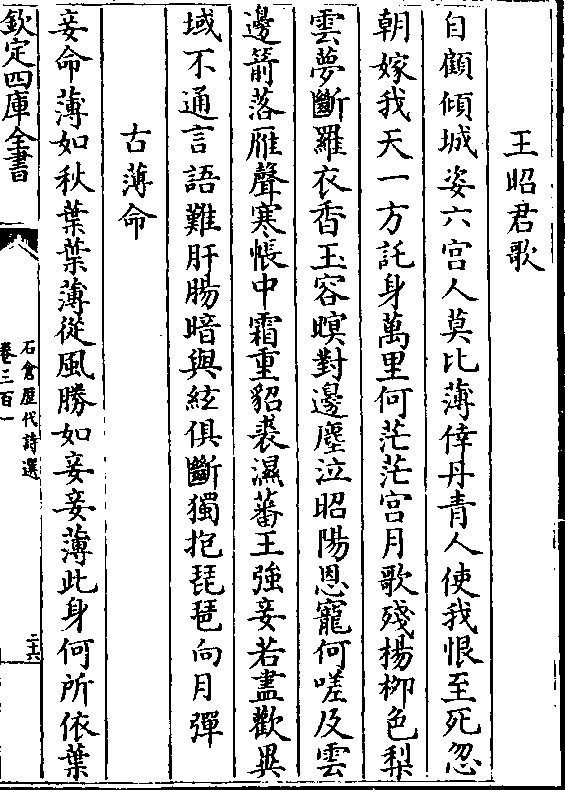 王昭君歌
自顧傾城姿六宫人莫比薄倖丹青人使我恨至死忽
朝嫁我天一方託身萬里何茫茫宫月歌殘楊栁色梨
雲夢斷羅衣香玉容暝對邊塵泣昭陽恩寵何嗟及雲
邊箭落雁聲寒帳中霜重貂裘濕蕃王強妾若盡歡異
域不通言語難肝腸暗與絃俱斷獨抱琵琶向月彈
古薄命
妾命薄如秋葉葉薄從風勝如妾妾薄此身何所依葉
欽定四庫全書
石倉歴代詩選
卷三百一
二十六